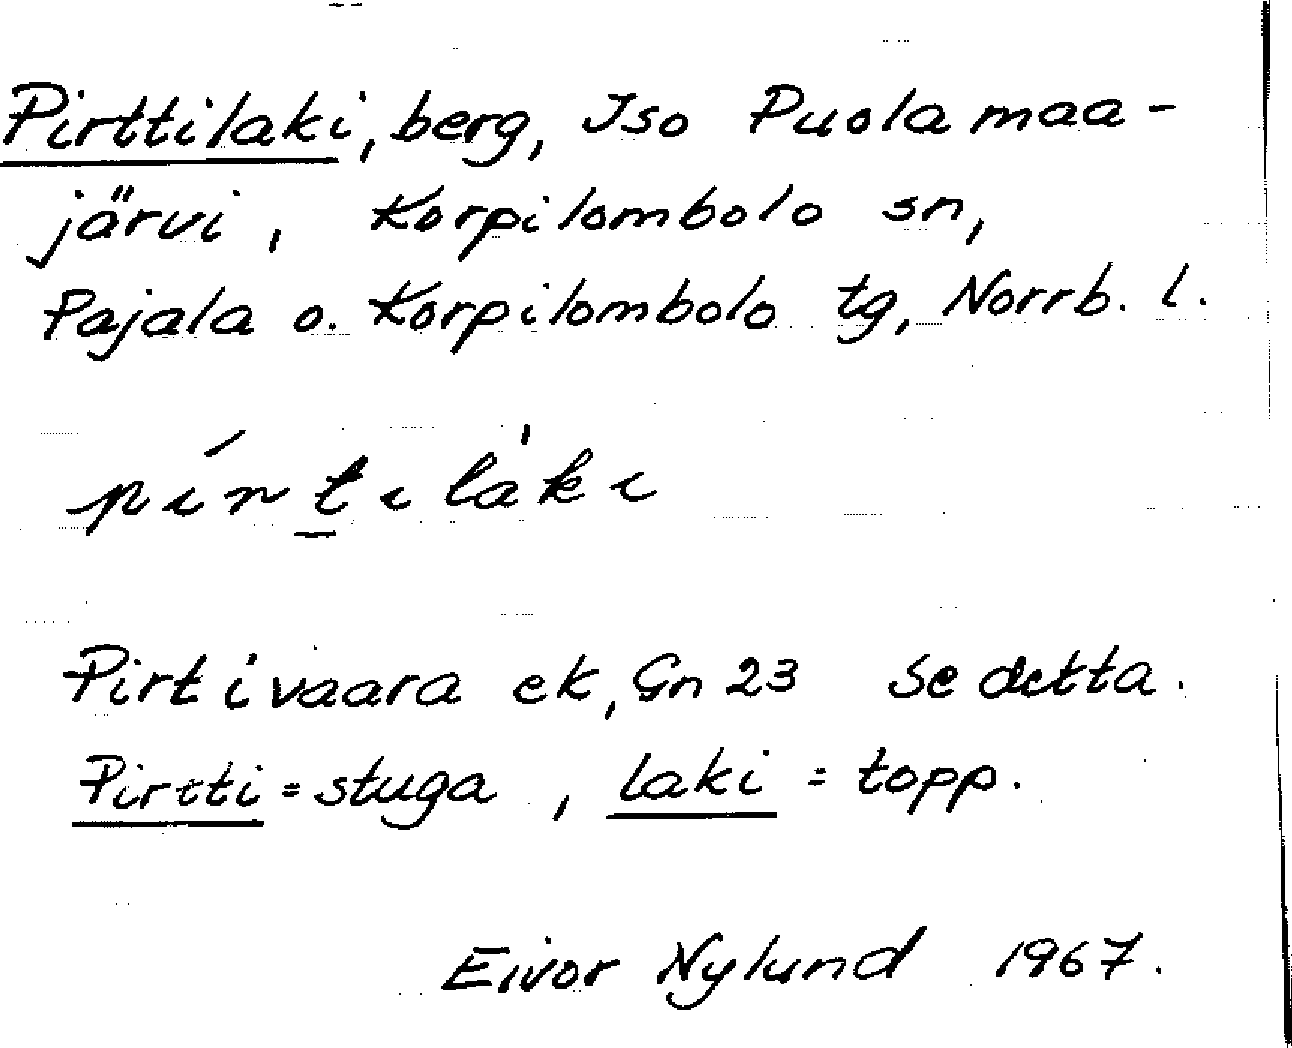 Pirttilaki, berg, Iso Puolamaa-
järvi, Korpilombolo sn,
Pajala o. Korpilombolo tg, Norrb. l.
pírtilàki
Pirtivaara ek, Gn 23 Se detta.
Pirtti = stuga, laki = topp.
Eivor Nylund 1967.